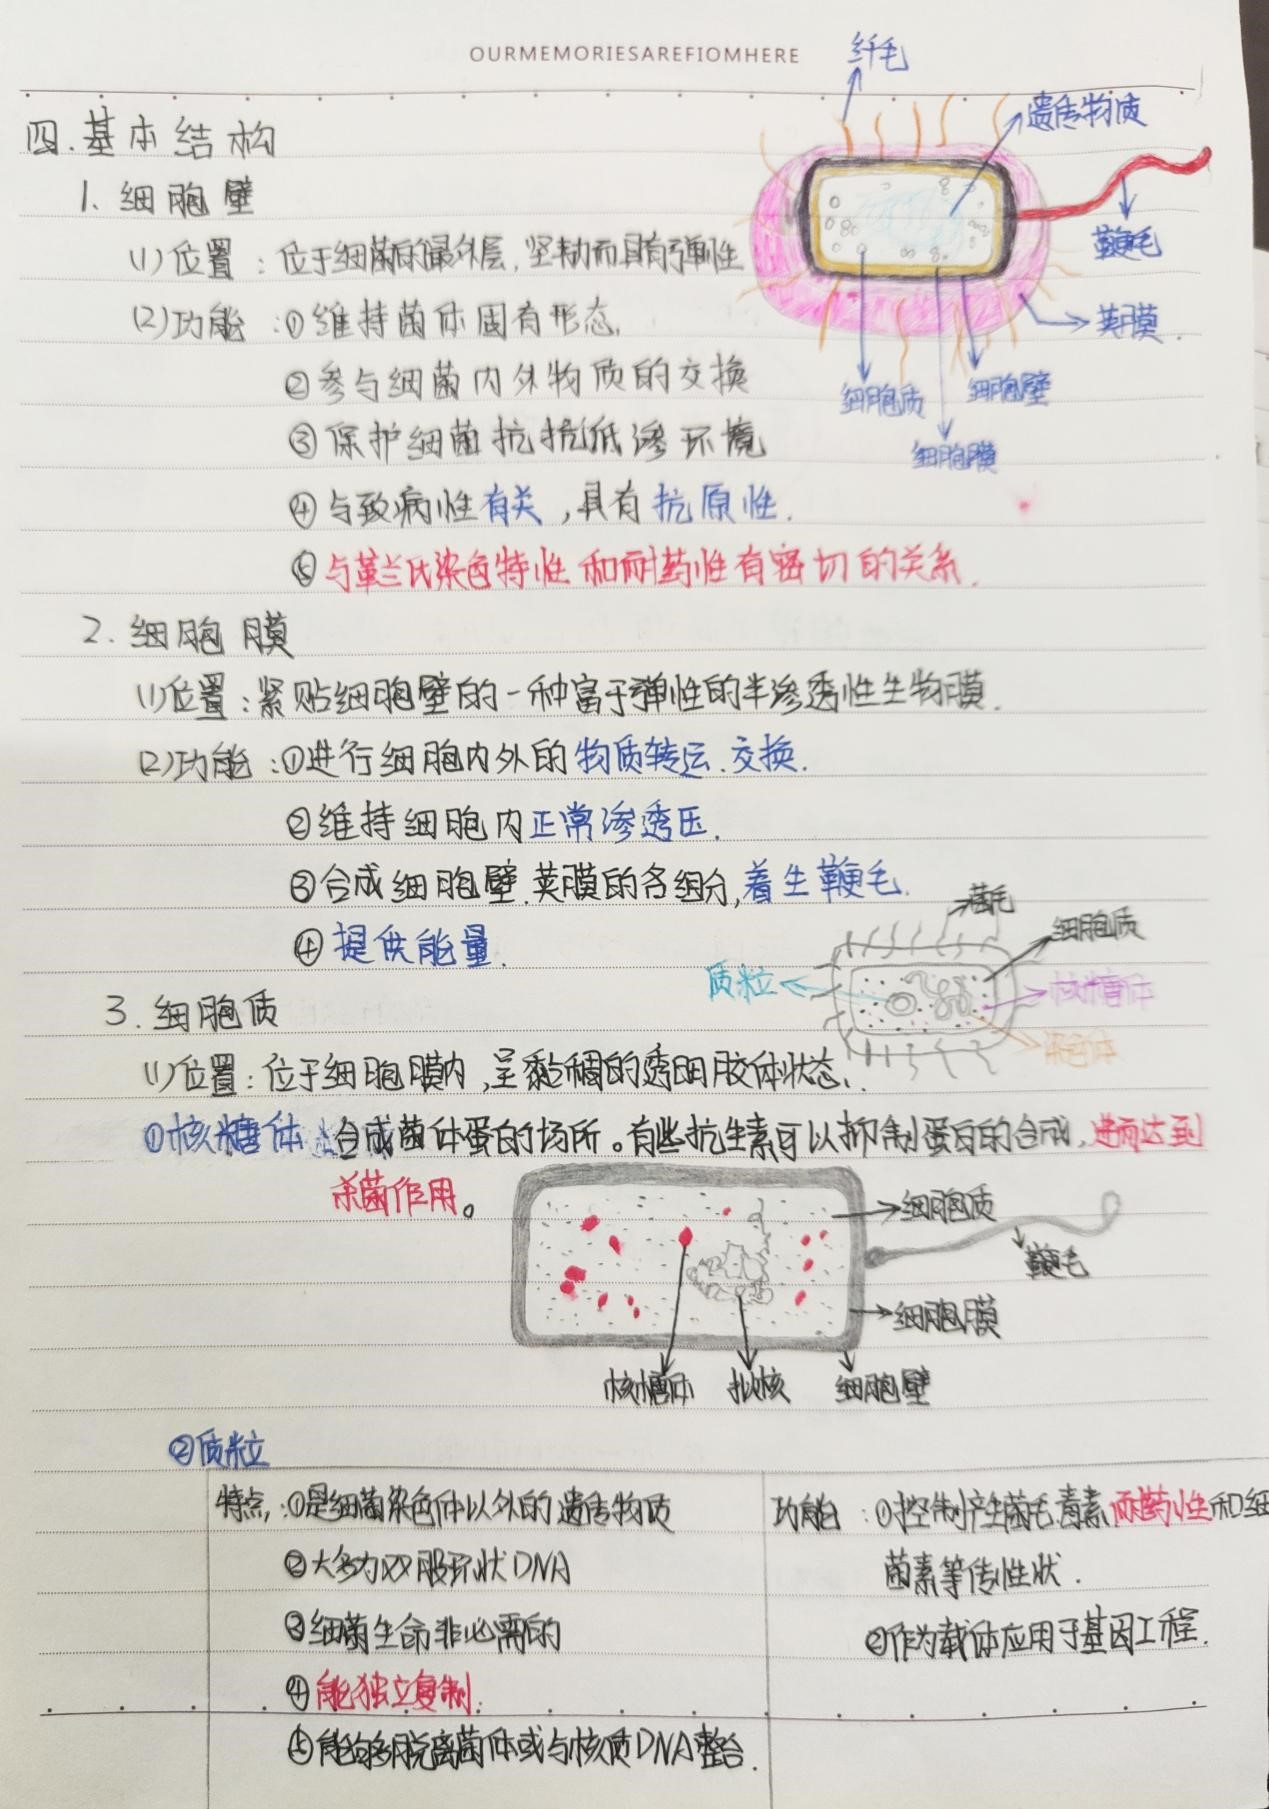 OURMEMORIESAREFIOMHERE
纤毛
遗传物质
四.基本结构
1.细胞壁
(1)位置:位于细菌的最外层,坚韧而具有弹性
鞭毛
(2)功能:①维持菌体固有形态.
荚膜.
②参与细菌内外物质的交换
细胞质 细胞壁
③保护细菌抗抗低渗环境
细胞膜
④与致病性有关,具有抗原性.
⑤与革兰氏染色特性和耐药性有密切的关系.
2.细胞膜
(1)位置:紧贴细胞壁的一种富于弹性的半渗透性生物膜.
(2)功能:①进行细胞内外的物质转运.交换.
②维持细胞内正常渗透压.
③合成细胞壁.荚膜的各组分,着生鞭毛.
菌毛
④提供能量.
细胞质
质粒 核糖体
3.细胞质
染色体
(1)位置:位于细胞膜内,呈黏稠的透明胶体状态.
①核糖体:合成菌体蛋白的场所。有些抗生素可以抑制蛋白的合成,进而达到
杀菌作用。
细胞质
鞭毛
细胞膜
核糖体 拟核 细胞壁
②质粒
特点:①是细菌染色体以外的遗传物质
②大多为双股环状DNA
③细菌生命非必需的
④能独立复制.
⑤能够脱离菌体或与核质DNA整合.
功能:①控制产生菌毛.毒素.耐药性和细
菌素等传性状.
②作为载体应用于基因工程.